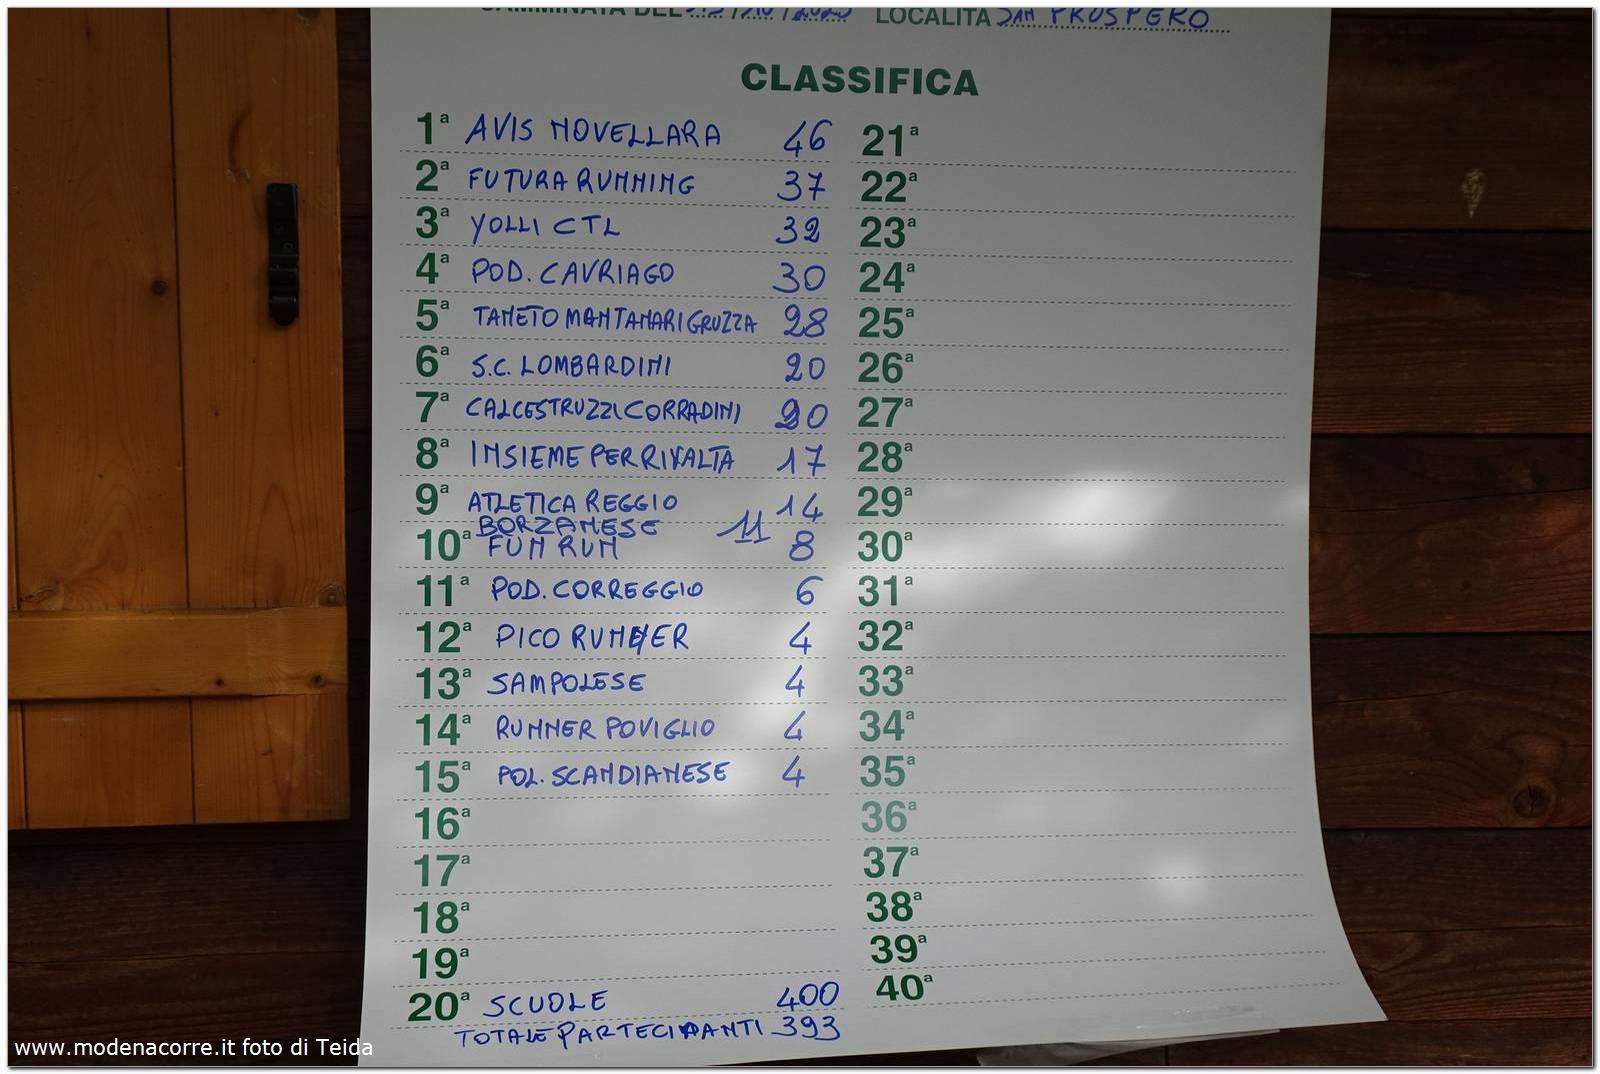 CAMMINATA DEL /10/2023 LOCALITÀ SAN PROSPERO
CLASSIFICA
1ª AVIS NOVELLARA 46
2ª FUTURA RUNNING 37
3ª YOLLI CTL 32
4ª POD. CAVRIAGO 30
5ª TANETO MONTANARI GRUZZA 28
6ª S.C. LOMBARDINI 20
7ª CALCESTRUZZI CORRADINI 20
8ª INSIEME PER RIVALTA 17
9ª ATLETICA REGGIO 14
BORZANESE 11
10ª FUN RUN 8
11ª POD. CORREGGIO 6
12ª PICO RUNNER 4
13ª SAMPOLESE 4
14ª RUNNER POVIGLIO 4
15ª POL. SCANDIANESE 4
16ª
17ª
18ª
19ª
20ª SCUOLE 400
TOTALE PARTECIPANTI 393
21ª
22ª
23ª
24ª
25ª
26ª
27ª
28ª
29ª
30ª
31ª
32ª
33ª
34ª
35ª
36ª
37ª
38ª
39ª
40ª
www.modenacorre.it foto di Teida